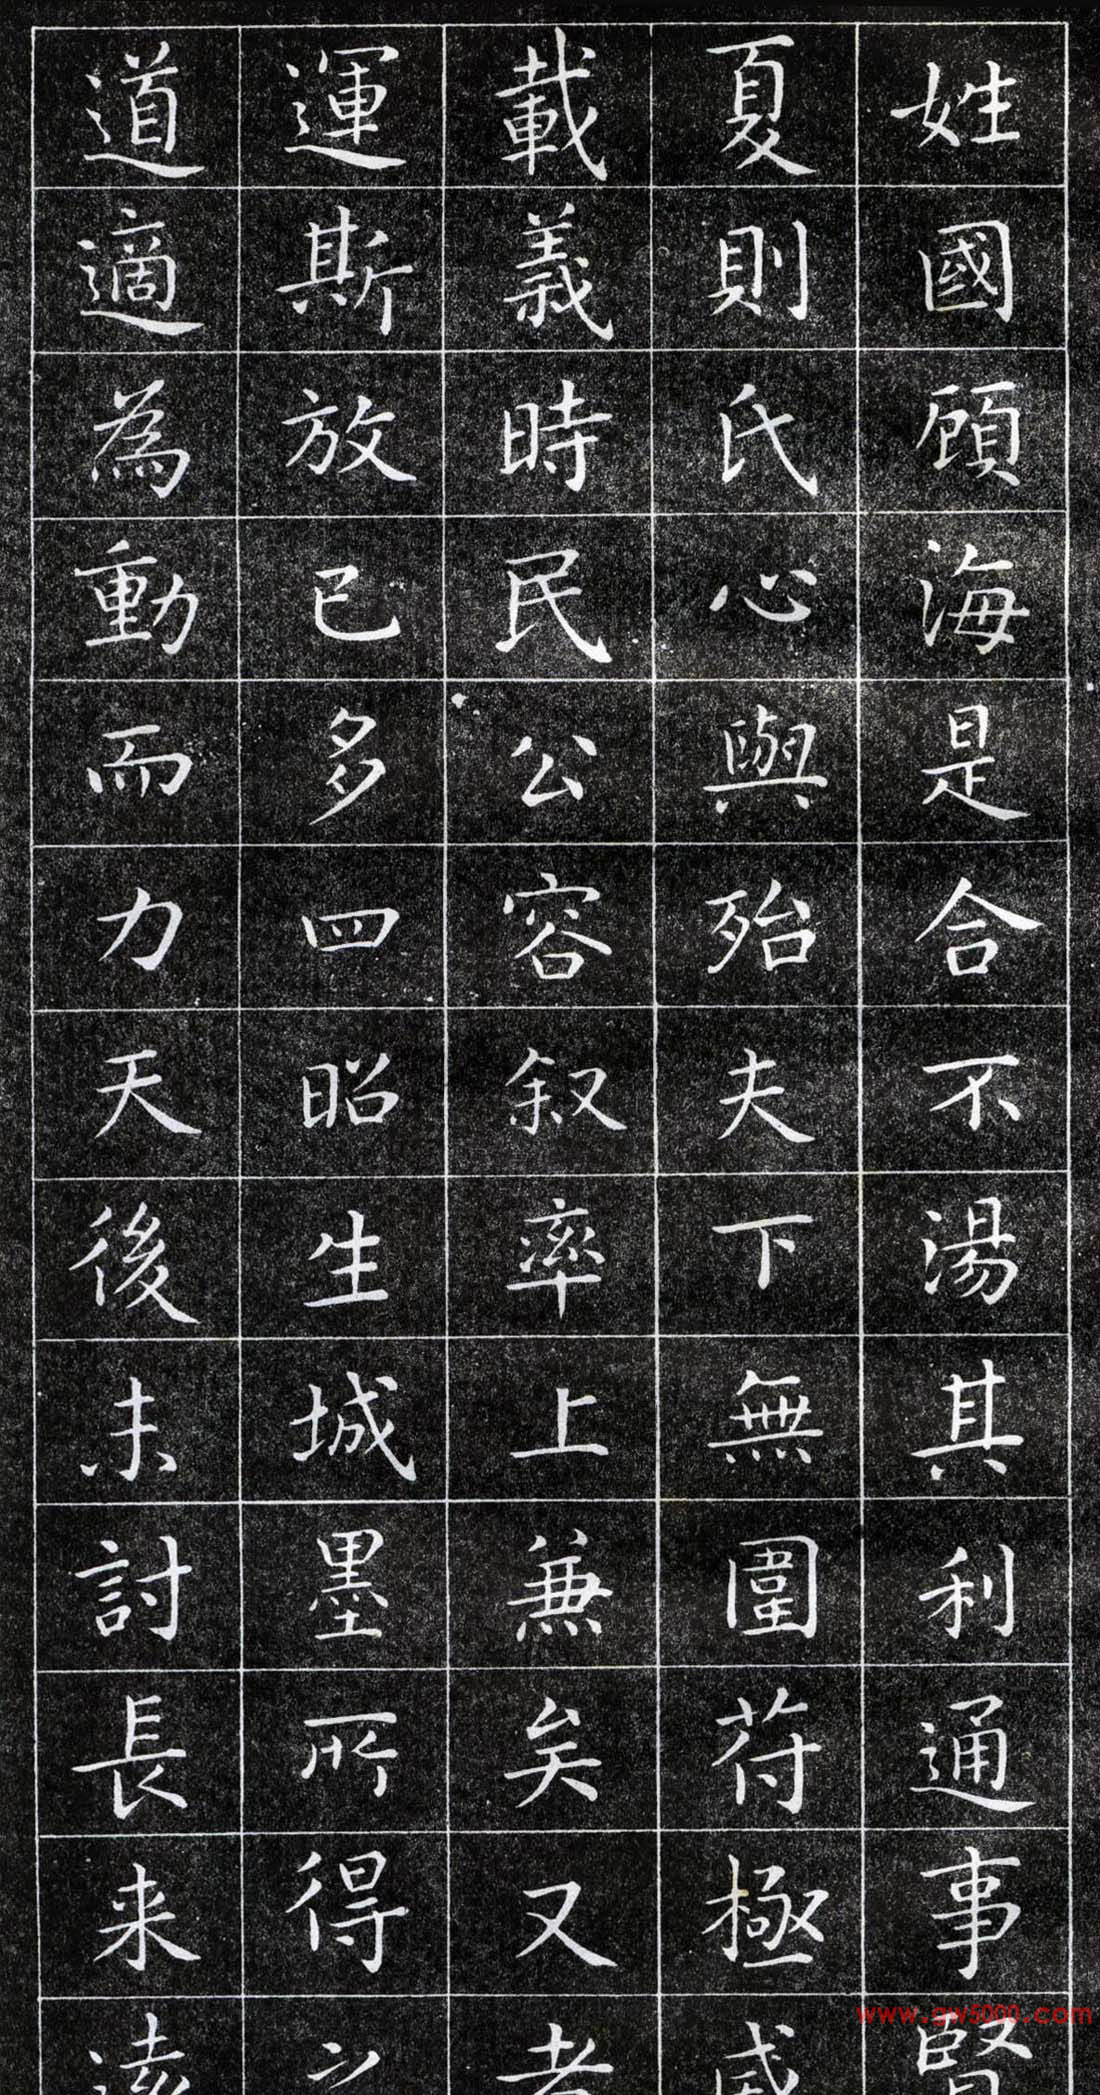 姓國顧海是合不湯其利通事賢
夏則氏心與殆夫下無圍苻極咸
載義時民公容叙率上兼矣又者
運斯放已多四昭生城墨所得之
道適為動而力天後未討長来遠
www.gw5000.com